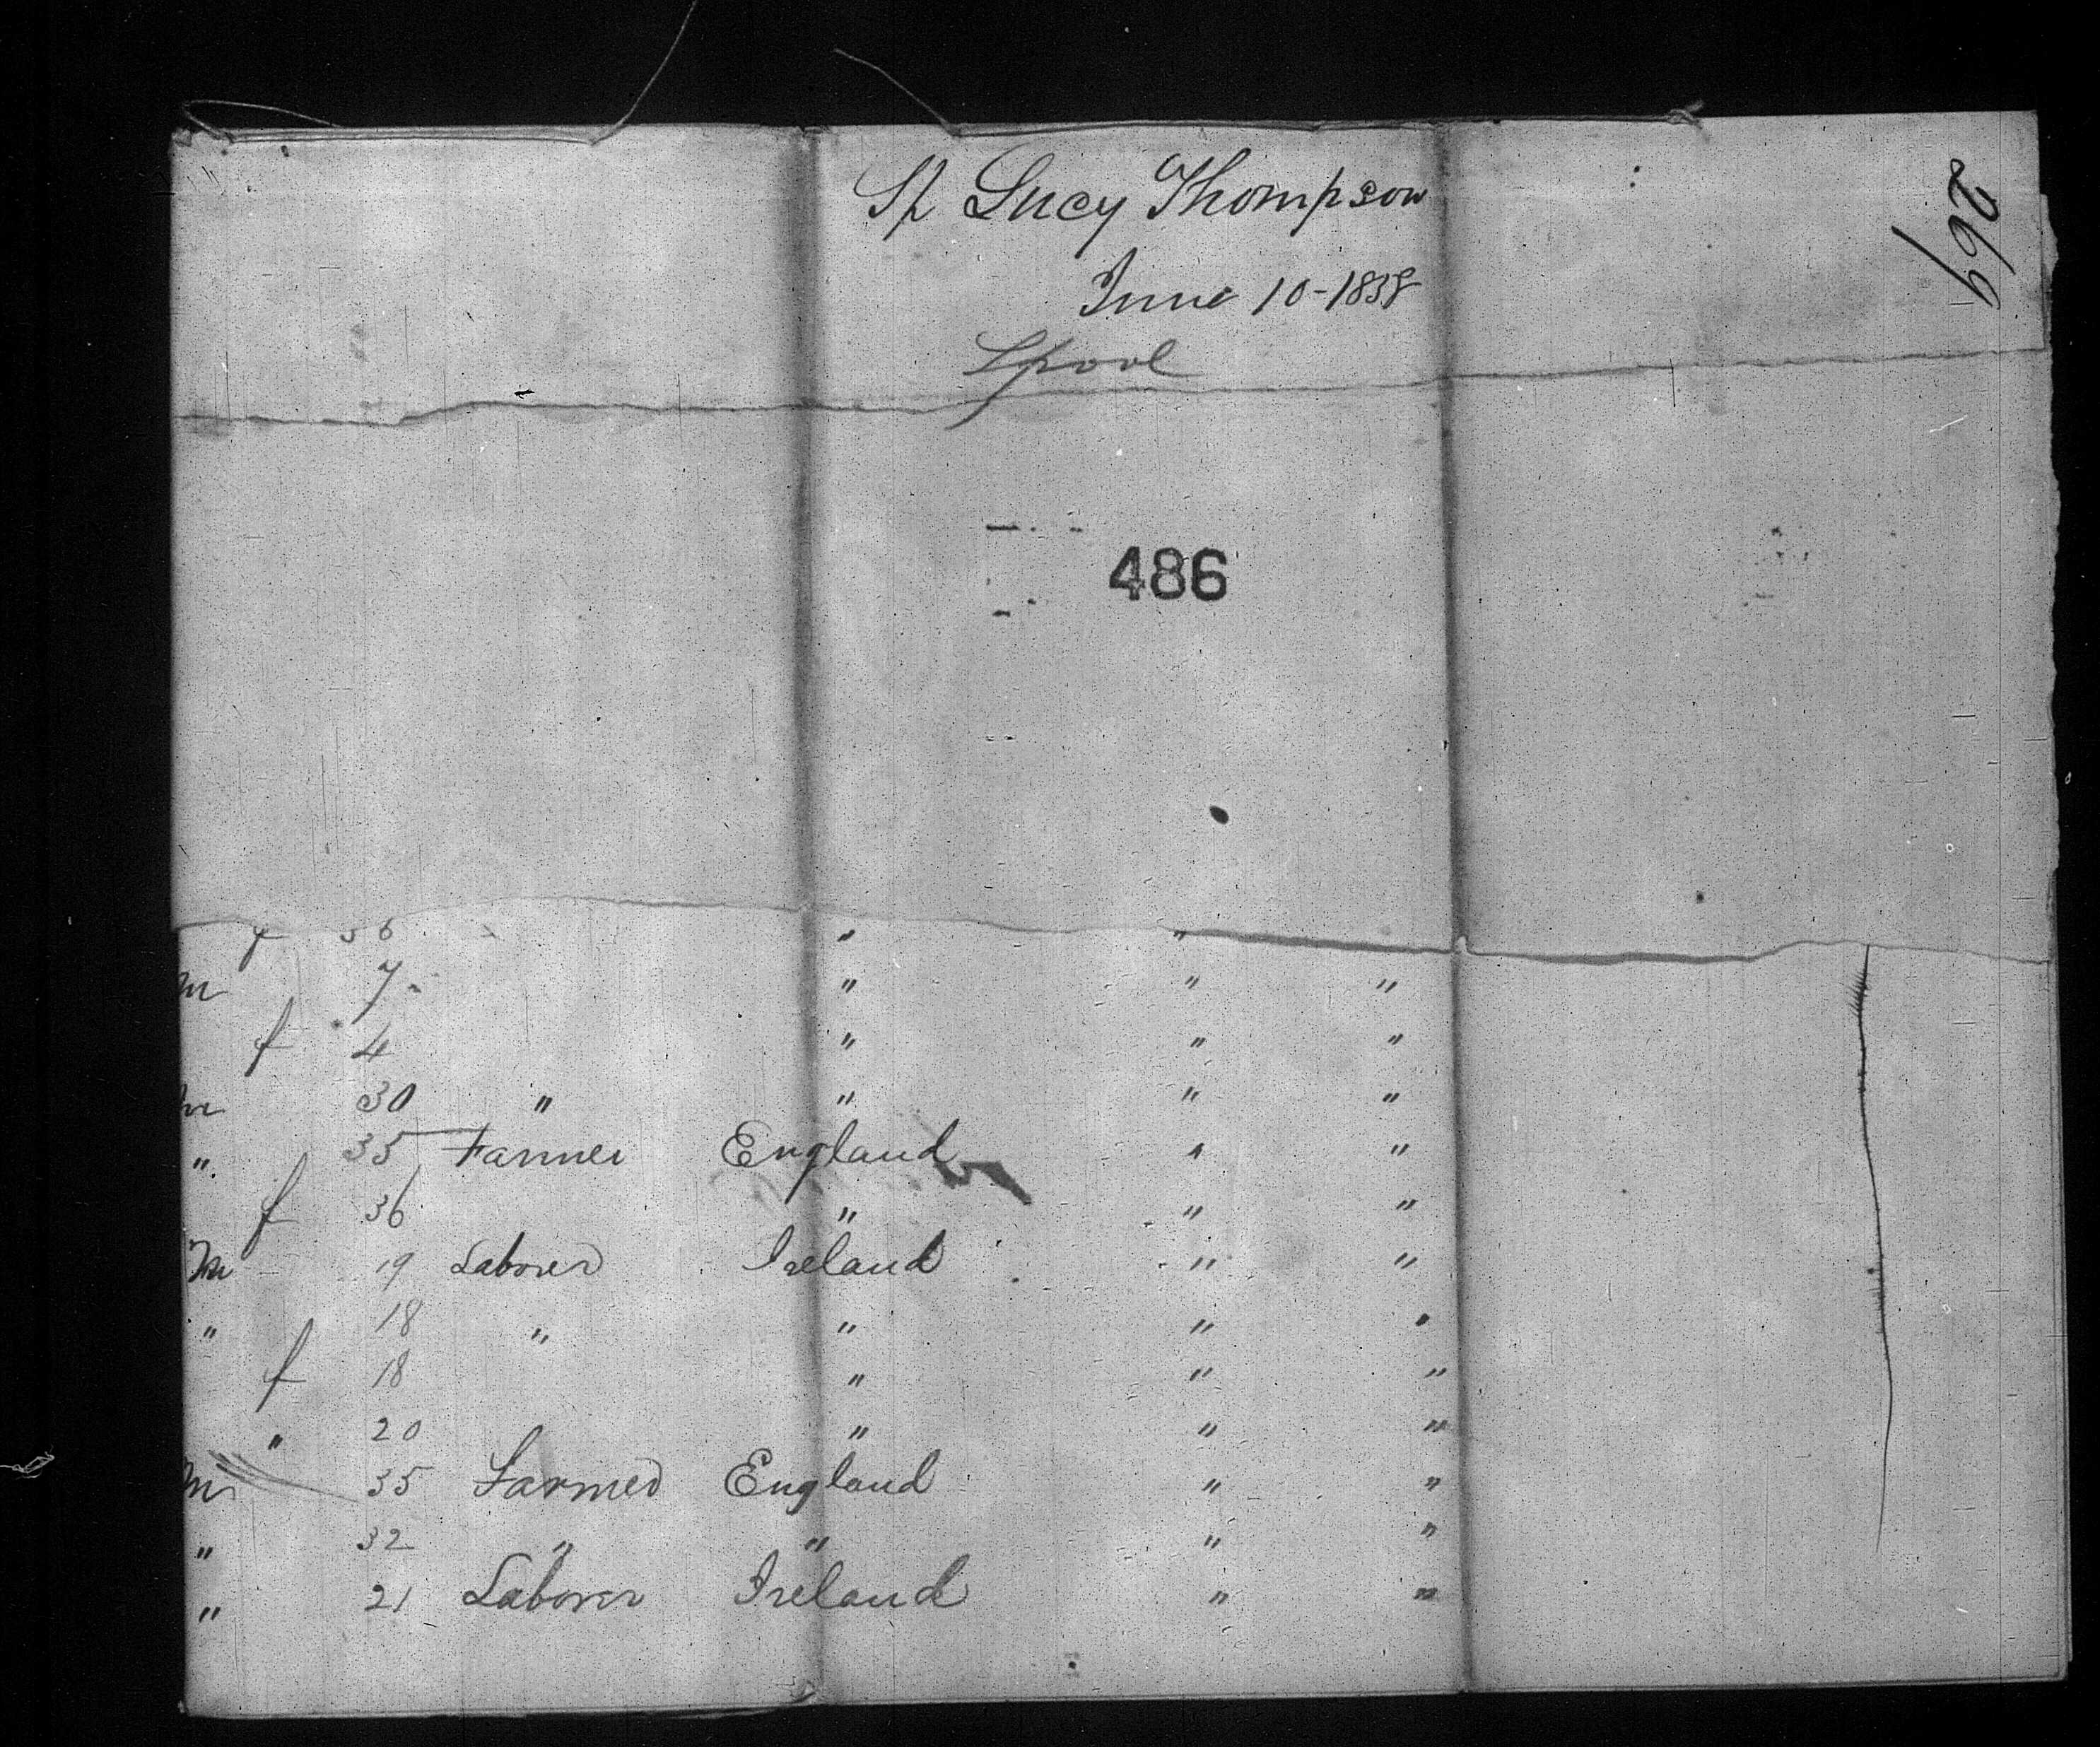 Sh Lucy Thompson
June 10-1838
Lpool
269
486
f 36 " "
m 7 " " "
f 4 " " "
m 30 " " " "
" 35 Farmer England " "
f 36 " " "
m 19 Laborer Ireland " "
" 18 " " " "
f 18 " " "
" 20 " " "
m 35 Farmer England " "
" 32 " " " "
" 21 Laborer Ireland " "